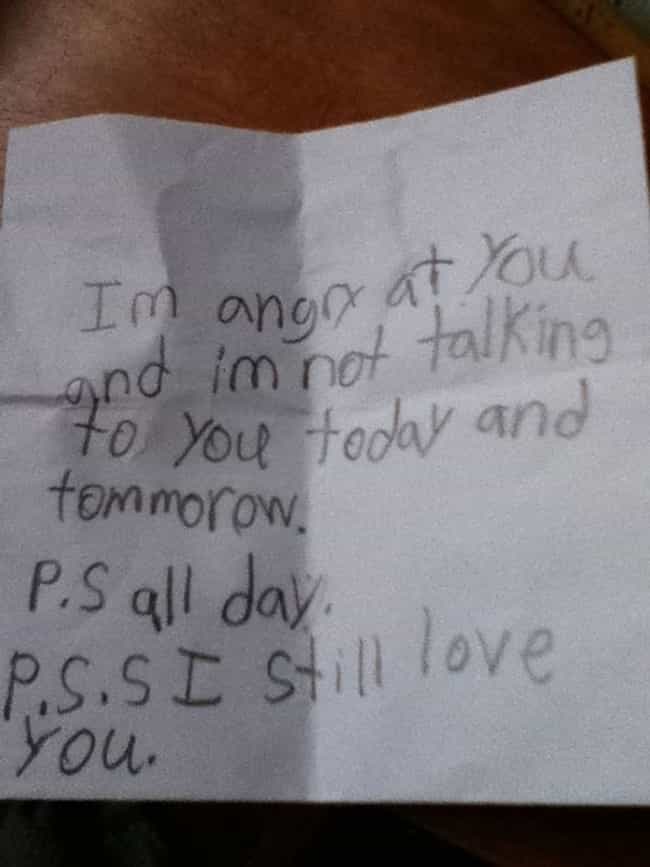 Im angry at you
and im not talking
to you today and
tommorow.
P.S all day.
P.S.S I still love
you.